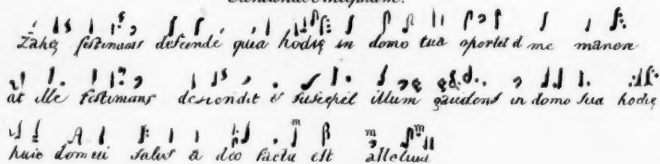 Zaheę festinans descende quia hodię in domo tua oportet me manere
at ille festinans descendit & suscepit illum gaudens in domo sua hodię
huic domui salus a deo facta est alleluia